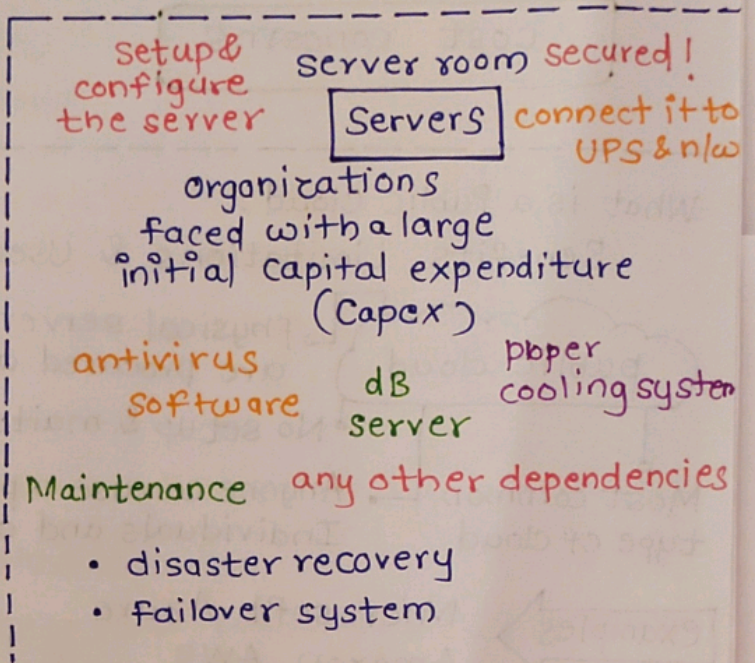 setup &
configure
the server
server room
secured!
Servers
connect it to
UPS & n/w
organizations
faced with a large
initial capital expenditure
(Capex)
antivirus
software
dB
server
proper
cooling system
Maintenance
any other dependencies
• disaster recovery
• failover system